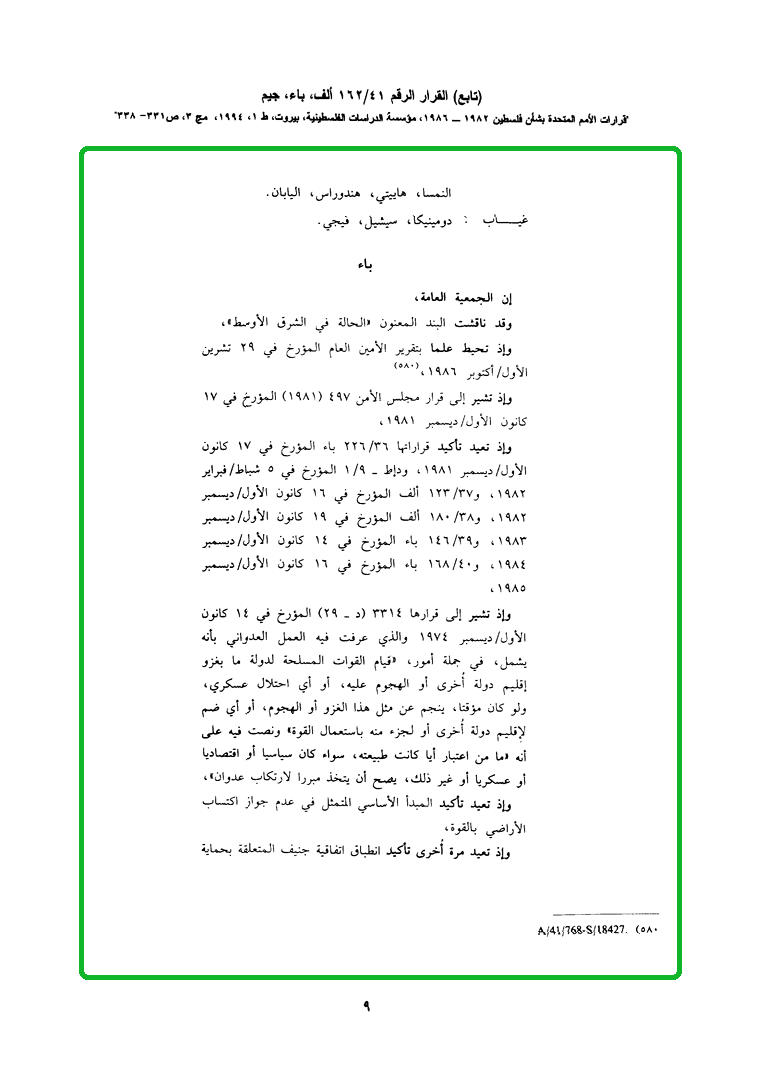 (تابع) القرار الرقم ١٦٢/٤١ ألف، باء، جيم
"قرارات الأمم المتحدة بشأن فلسطين ١٩٨٢ ــ ١٩٨٦، مؤسسة الدراسات الفلسطينية، بيروت، ط ١، ١٩٩٤، مج ٣، ص٣٣١- ٣٣٨"
النمسا، هاييتي، هندوراس، اليابان.
غيـــــاب : دومينيكا، سيشيل، فيجي.
باء
إن الجمعية العامة،
وقد ناقشت البند المعنون «الحالة في الشرق الأوسط»،
وإذ تحيط علما بتقرير الأمين العام المؤرخ في ٢٩ تشرين
الأول/أكتوبر ١٩٨٦،(٥٨٠)
وإذ تشير إلى قرار مجلس الأمن ٤٩٧ (١٩٨١) المؤرخ في ١٧
كانون الأول/ديسمبر ١٩٨١،
وإذ تعيد تأكيد قراراتها ٢٢٦/٣٦ باء المؤرخ في ١٧ كانون
الأول/ديسمبر ١٩٨١، ودإط ــ ١/٩ المؤرخ في ٥ شباط/فبراير
١٩٨٢، و١٢٣/٣٧ ألف المؤرخ في ١٦ كانون الأول/ديسمبر
١٩٨٢، و١٨٠/٣٨ ألف المؤرخ في ١٩ كانون الأول/ديسمبر
١٩٨٣، و١٤٦/٣٩ باء المؤرخ في ١٤ كانون الأول/ديسمبر
١٩٨٤، و١٦٨/٤٠ باء المؤرخ في ١٦ كانون الأول/ديسمبر
١٩٨٥،
وإذ تشير إلى قرارها ٣٣١٤ (د ــ ٢٩) المؤرخ في ١٤ كانون
الأول/ديسمبر ١٩٧٤ والذي عرفت فيه العمل العدواني بأنه
يشمل، في جملة أمور، «قيام القوات المسلحة لدولة ما بغزو
إقليم دولة أُخرى أو الهجوم عليه، أو أي احتلال عسكري،
ولو كان مؤقتا، ينجم عن مثل هذا الغزو أو الهجوم، أو أي ضم
لإقليم دولة أُخرى أو لجزء منه باستعمال القوة» ونصت فيه على
أنه «ما من اعتبار أيا كانت طبيعته، سواء كان سياسيا أو اقتصاديا
أو عسكريا أو غير ذلك، يصح أن يتخذ مبررا لارتكاب عدوان»،
وإذ تعيد تأكيد المبدأ الأساسي المتمثل في عدم جواز اكتساب
الأراضي بالقوة،
وإذ تعيد مرة أُخرى تأكيد انطباق اتفاقية جنيف المتعلقة بحماية
(٥٨٠ A/41/768-S/18427.
٩